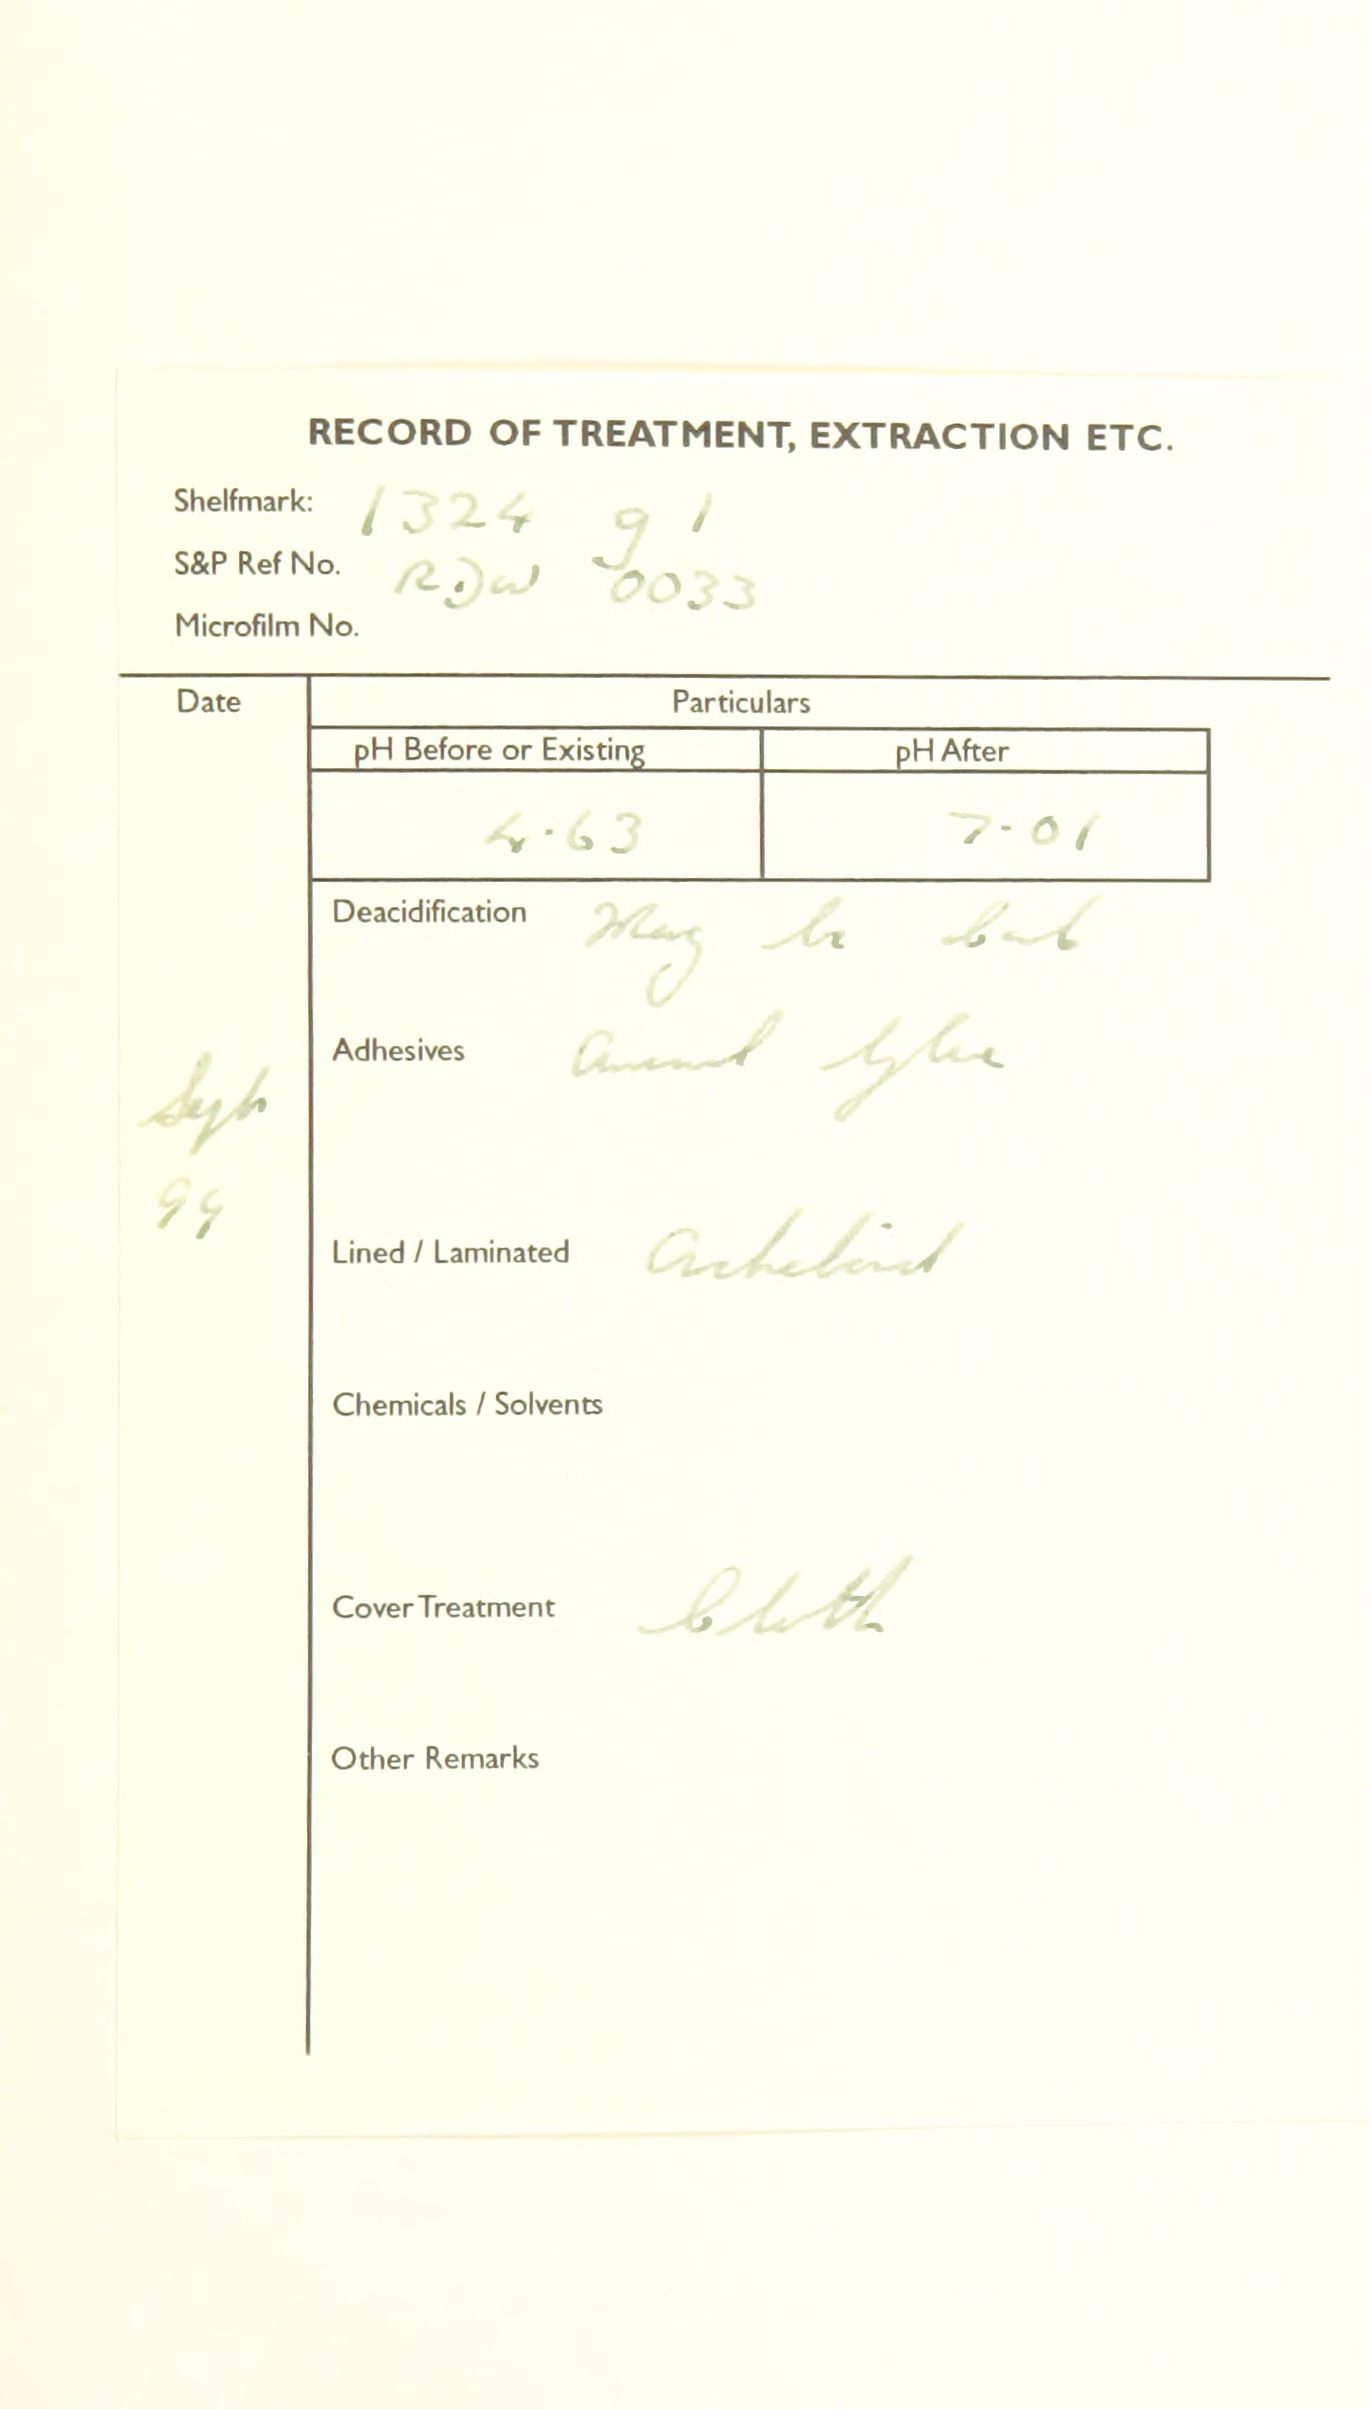 RECORD OF TREATMENT, EXTRACTION ETC.
Shelfmark: 1324 g 1
S&P Ref No. RDW 0033
Microfilm No.
Date Particulars
pH Before or Existing pH After
4.63 7-01
Deacidification Mag bi carb
Adhesives Animal Glue
Sept
99
Lined / Laminated Archibind
Chemicals / Solvents
Cover Treatment Cloth
Other Remarks